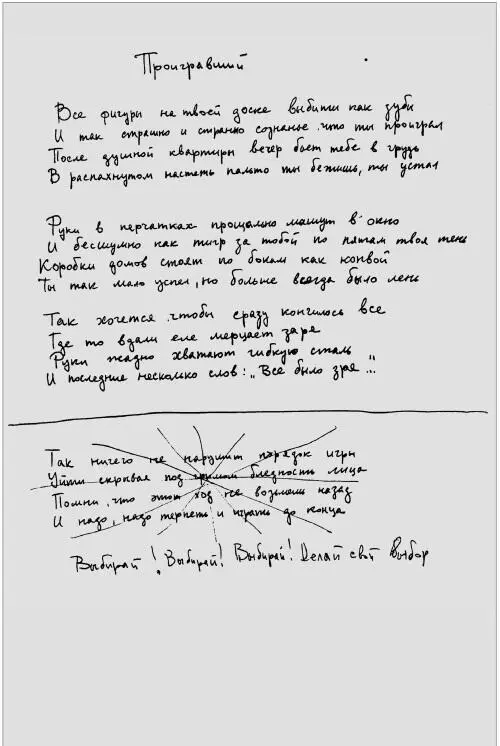 Проигравший
Все фигуры на твоей доске выбиты как зубы
И так страшно и странно сознанье что ты проиграл
После душной квартиры вечер бьет тебе в грудь
В распахнутом настеж пальто ты бежишь, ты устал
Руки в перчатках прощально машут в окно
И бесшумно как тигр за тобой по пятам твоя тень
Коробки домов стоят по бокам как конвой
Ты так мало успел, но больше всегда было лень
Так хочется чтобы сразу кончилось все
Где то вдали еле мерцает заря
Руки жадно хватают гибкую сталь
И последние несколько слов: „Все было зря"...
Так ничего не нарушит порядок игры
Уйти скрывая под гримом бледность лица
Помни, что этот ход не возьмешь назад
И надо, надо терпеть и играть до конца
Выбирай! Выбирай! Выбирай! Делай свой выбор